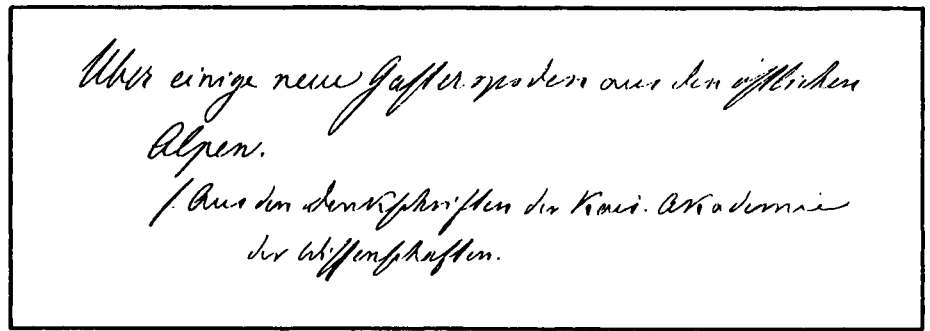 Über einige neue Gasteropoden aus den östlichen
Alpen.
(Aus den Denkschriften der Kais. Akademie
der Wissenschaften.